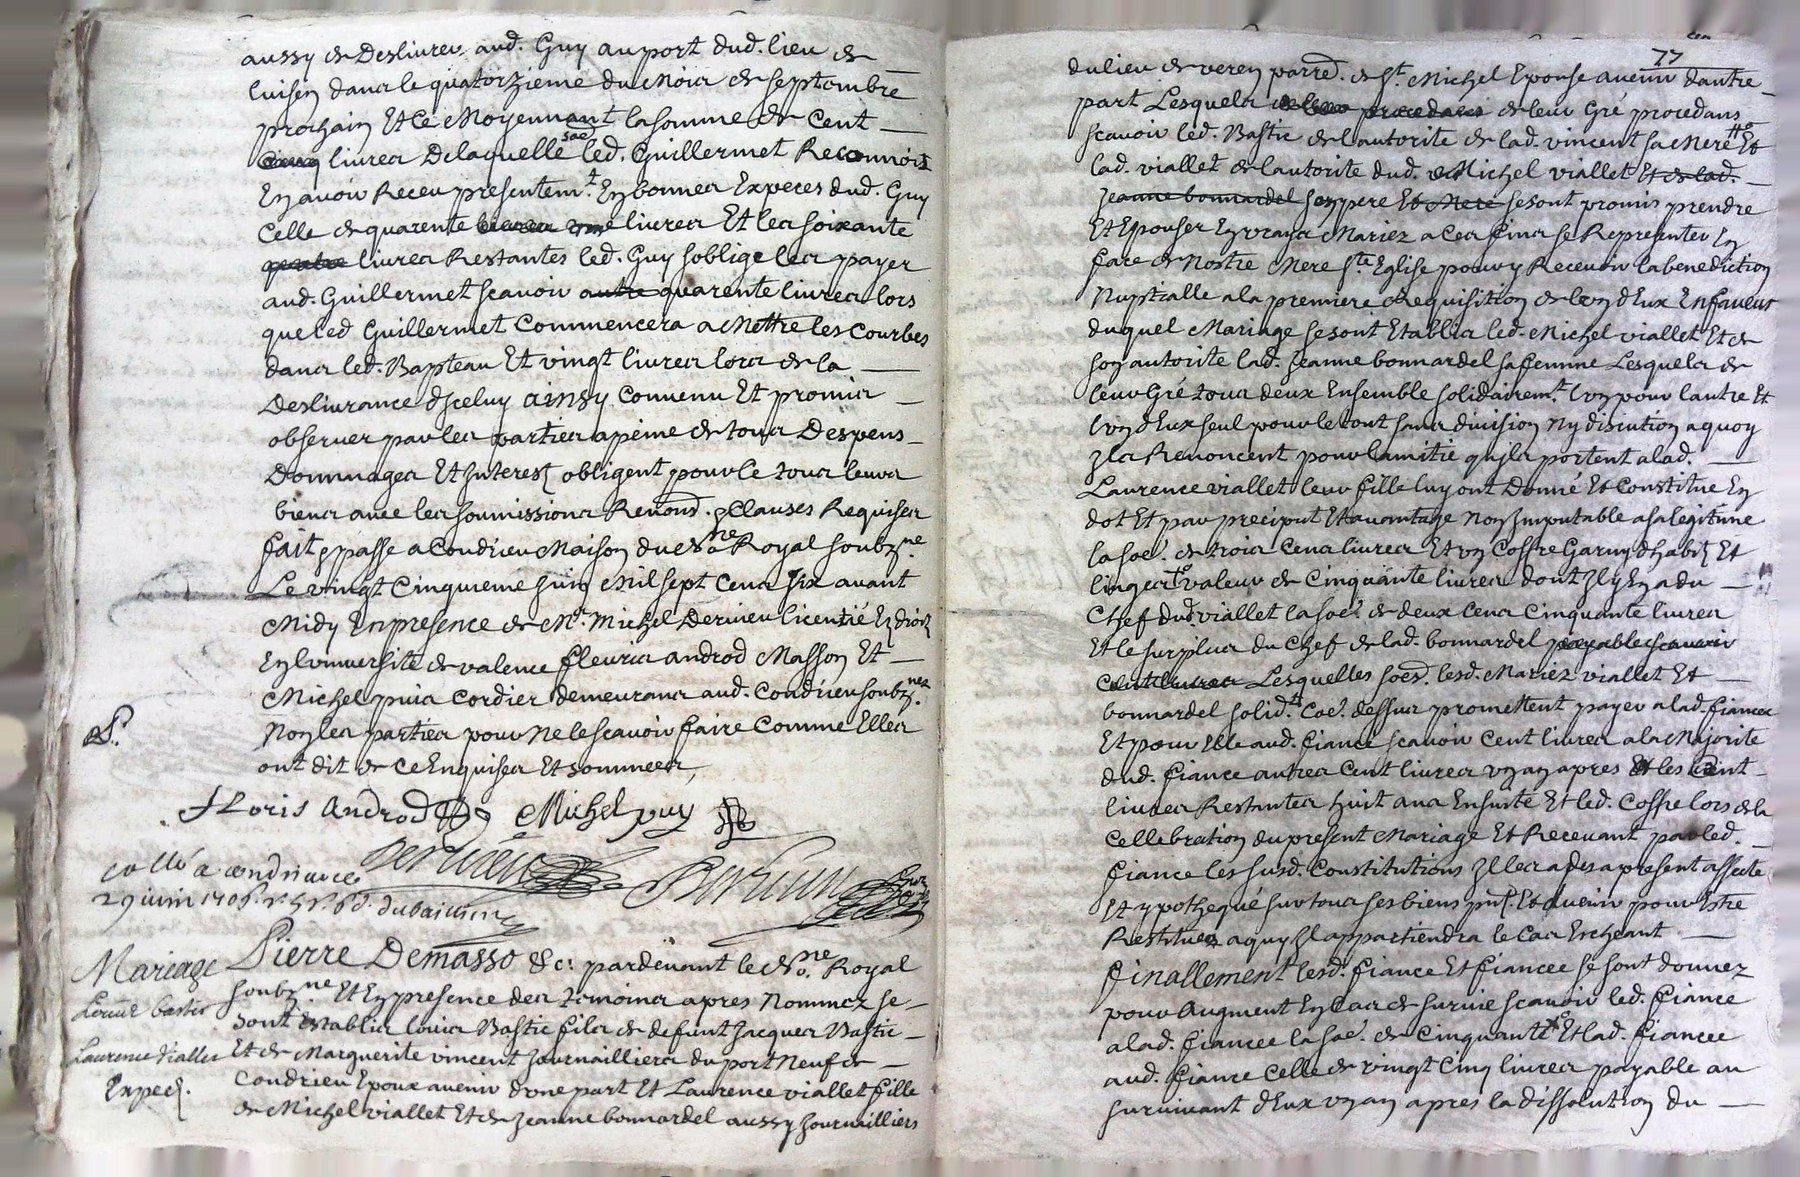 aussy de Deslivrer aud. Guy au port dud. lieu de
luisey dans le quatorzieme du Mois de septembre
prochain Et Ce Moyennant la somme de Cent
cinq livres De laquelle sae led. Guillermet Reconnoist
En avoir Receu presentemt. En bonnes Expeces dud. Guy
Celle de quarente livres Et les soixante
quatre livres Restantes led. Guy soblige les payer
aud. Guillermet scavoir autre quarente livres lors
que led Guillermet Commencera a Mettre les Courbes
dans led. Bapteau Et vingt livres lors de la
Deslivrance disceluy ainsy Convenu Et promis
observer par les parties apeine de tous Despens
Dommages Et Interest obligent pour le tous leurs
biens avec les soumissions Renond. & Clauses Requises
fait & passe a Condrieu Maison du Nore Royal soubzne.
Le vingt Cinquieme Juin Mil sept Cens six avant
Midy En presence de Mr. Michel Dervieu licentié En droit
En luniversité de valence fleuris androd Masson Et
Michel puis Cordier demeurans aud. Condrieu soubz.nes
Non les parties pour Ne le scavoir faire Comme Elles
ont dit de Ce Enquises Et sommees
fLoris Androd Michel puy
Collé a condrieu ce Dervieu
29 juin 1706.
Mariage
Louis bastie
Laurence Viallet
Exped.
Pierre Demasso &c: pardevant le Nore. Royal
soubzne. Et En presence des temoins apres Nommez se
sont Establis louis Bastie fils de defunt Jacques Bastie
Et de Marguerite vincent Journailliers du port Neuf de
Condrieu Epoux avenir dune part Et Laurence viallet fille
de Michel viallet Et de Jeanne bonnardel aussy Journailliers
77
du lieu de verey parred. de St. Michel Epouse avenir dautre
part Lesquels de leur procedans de leur Gré procedans
scavoir led. Bastie de lautorite de lad. vincent sa Mere Et
lad. viallet de lautorite dud. Michel viallet Et de lad.
Jeanne bonnardel son pere Et Mere se sont promis prendre
Et Epouser En vrays Mariez a Ces fins se Representer En
face de Nostre Mere ste. Eglise pour y Recevoir la benediction
Nuptialle a la premiere Requisition de lun dEux En faveur
duquel Mariage se sont Etablis led. Michel viallet Et de
son autorite lad. Jeanne bonnardel sa femme Lesquels de
leur Gré tous deux Ensemble solidairemt. lun pour lautre Et
lun dEux seul pour le tout sans division Ny disiution a quoy
Ils Renoncent pour lamitié quils portent a lad.
Laurence viallet leur fille luy ont Donné Et Constitué En
dot Et par preciput Et avantage Non Imputable a sa legitime
la soe. de trois Cens livres Et un Coffre Garny dhabits Et
linges valeur de Cinquante livres dont Il y En a du
Chef dud. viallet la soe. de deux Cens Cinquante livres
Et le surplus du Chef de lad. bonnardel payable scavoir
Cent livres Lesquelles soes. lesd. Mariez viallet Et
bonnardel solid.t Coe. dessus promettent payer a lad. fiancee
Et pour Elle aud. fiancé scavoir Cent livres a la Majorite
dud. fiance autres Cent livres un an apres Et les Cent
livres Restantes huit ans Ensuite Et led. Coffre lors de la
Cellebration du present Mariage Et Recevant par led.
fiance les susd. Constitutions Il les a des a present affecte
Et ypothequé sur tous ses biens pnt. Et avenir pour Estre
Restitues a quy Il appartiendra le Cas Escheant
finallement lesd. fiance Et fiancee se sont donnez
pour Augment En Cas de survie scavoir led. fiance
a lad. fiancee la soe. de Cinquante Et lad. fiancee
aud. fiance Celle de vingt Cinq livres payable au
survivant dEux un an apres la dissolution du